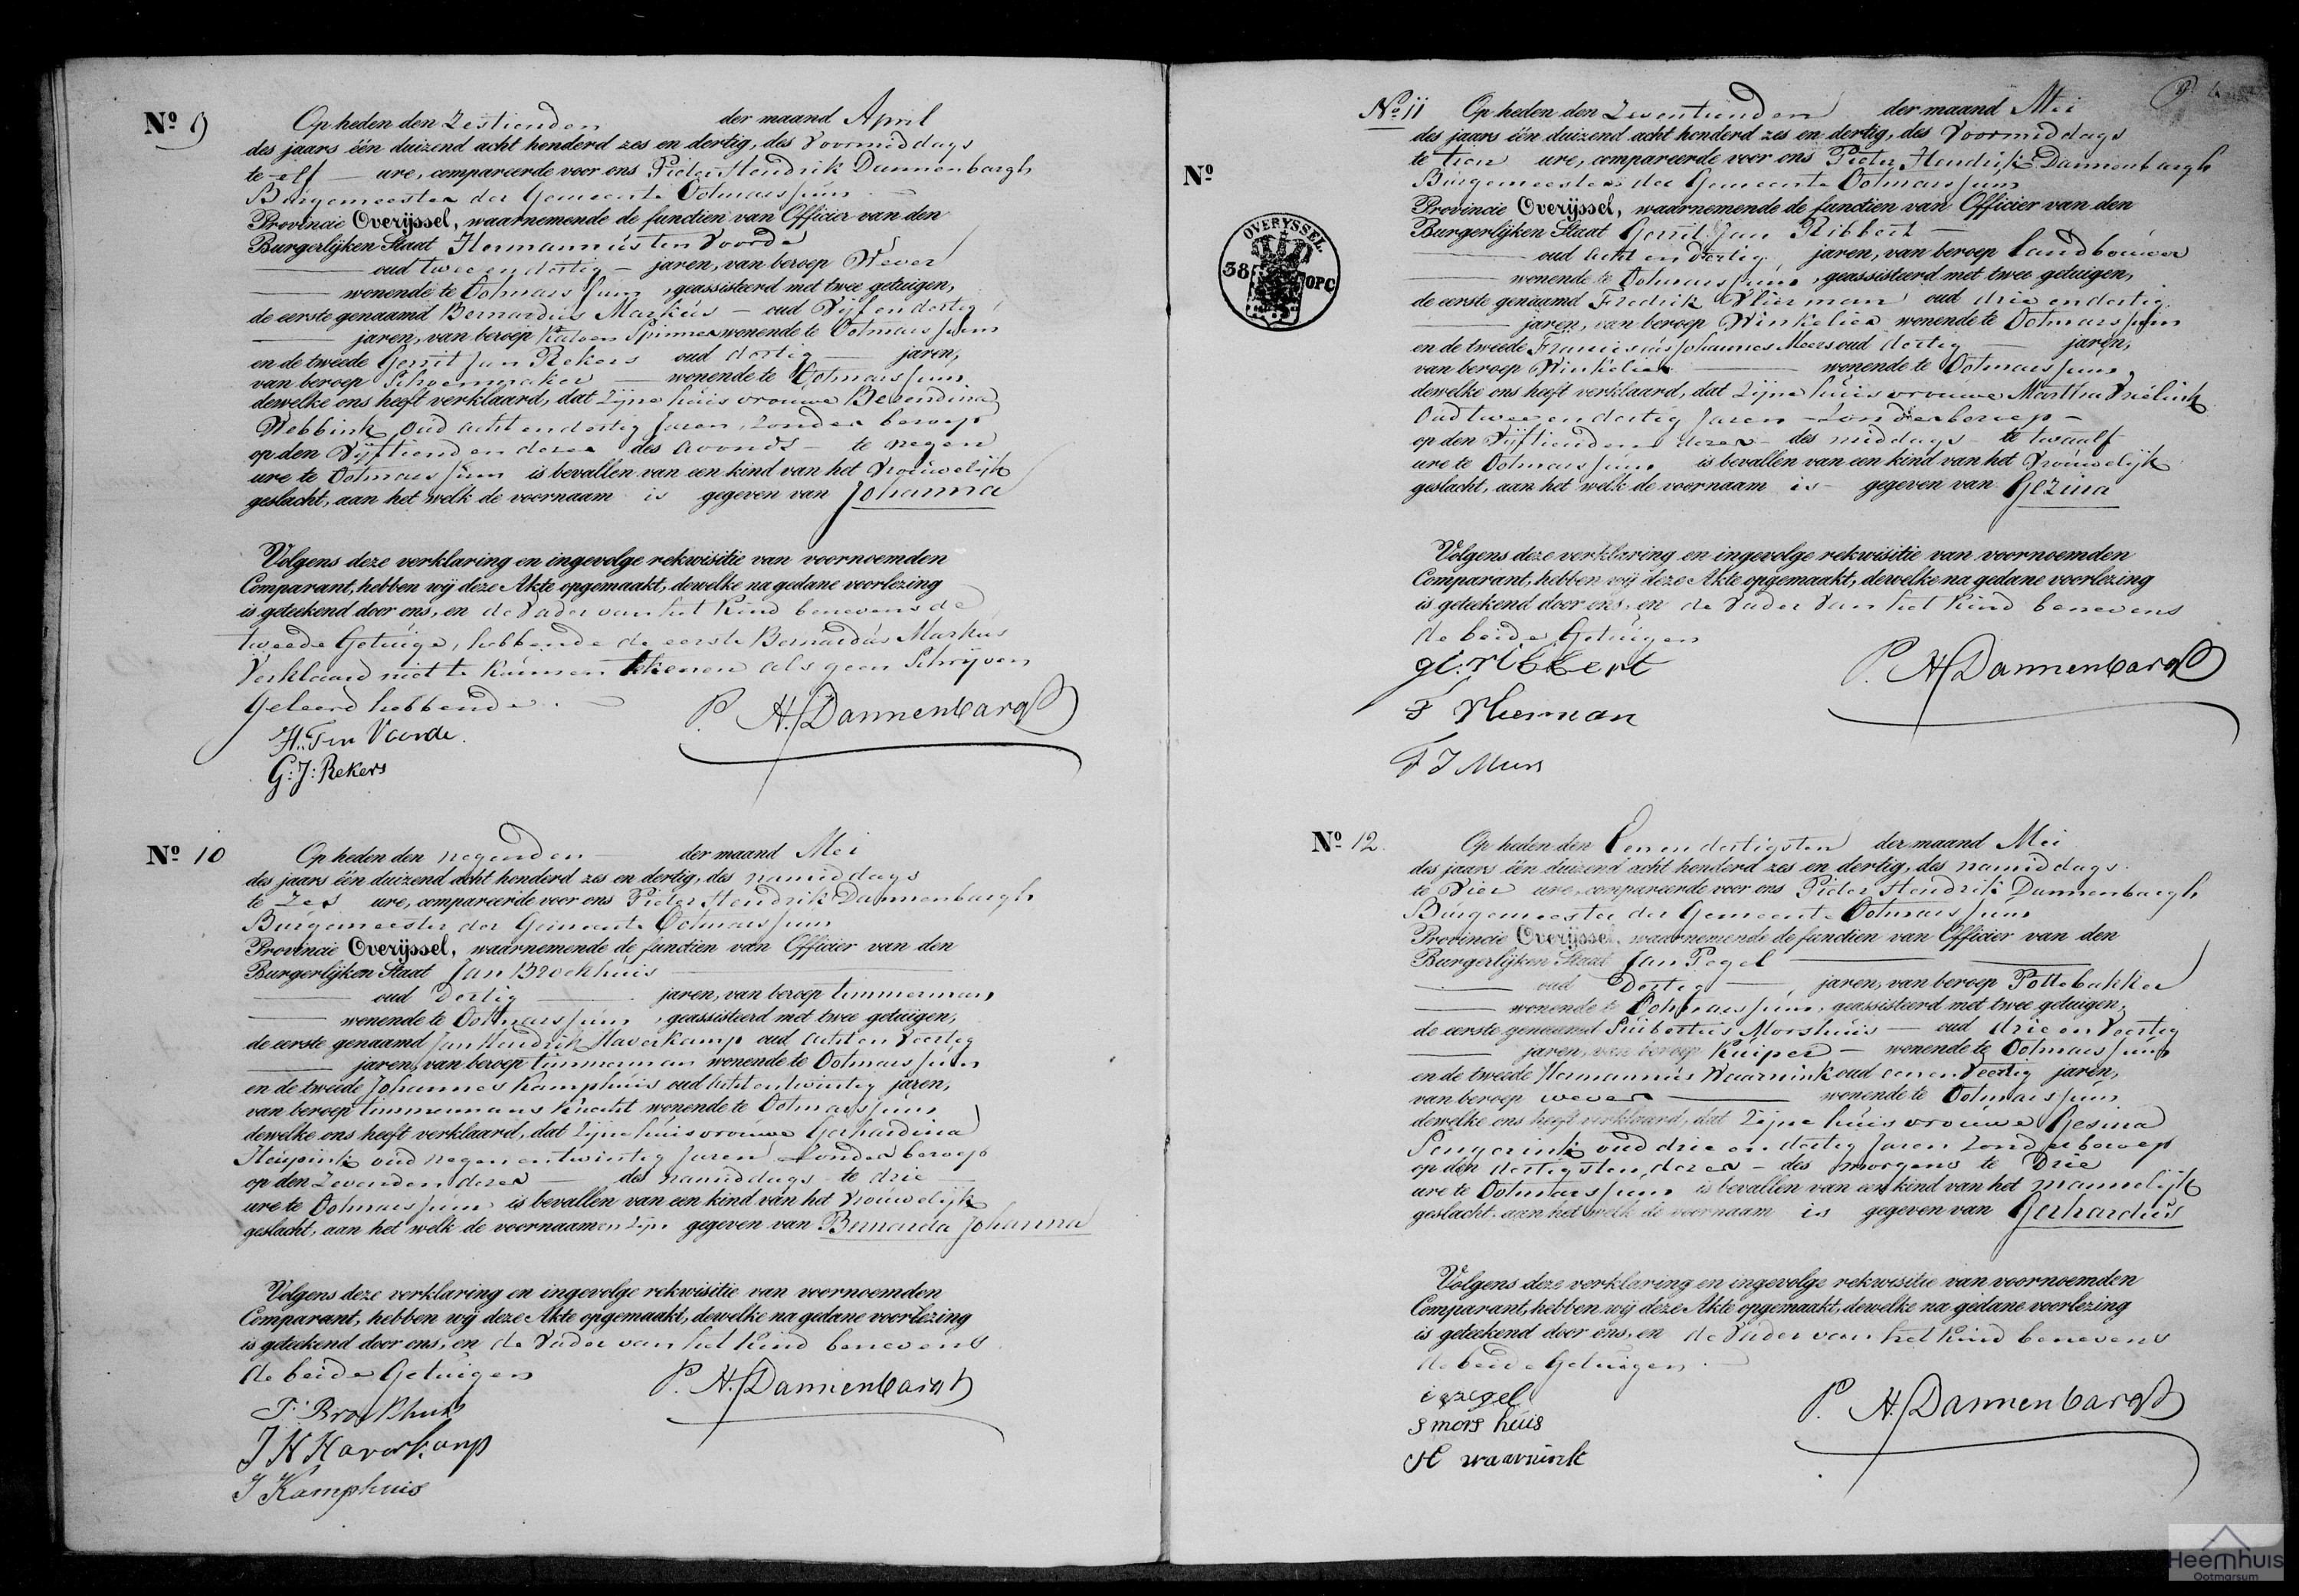 Nº 9
Op heden den Zestienden der maand April
des jaars één duizend acht honderd zes en dertig, des Voormiddags
te elf ure, compareerde voor ons Pieter Hendrik Dannenbargh
Burgemeester der Gemeente Ootmarssum
Provincie Overijssel, waarnemende de functien van Officier van den
Burgerlijken Staat Hermannus ten Voorde
oud twee en dertig jaren, van beroep Wever
wonende te Ootmarssum, geassisteerd met twee getuigen,
de eerste genaamd Bernardus Markus oud Vijf en dertig
jaren, van beroep Katoen Spinner wonende te Ootmarssum
en de tweede Gerrit Jan Rekers oud dertig jaren,
van beroep Schoenmaker wonende te Ootmarssum
dewelke ons heeft verklaard, dat Zijne huisvrouwe Berendina
Webbink oud acht en dertig Jaren, Zonder beroep
op den Vijftienden dezer des avonds te negen
ure te Ootmarssum is bevallen van een kind van het Vrouwelijk
geslacht, aan het welk de voornaam is gegeven van Johanna
Volgens deze verklaring en ingevolge rekwisitie van voornoemden
Comparant, hebben wij deze Akte opgemaakt, dewelke na gedane voorlezing
is geteekend door ons, en de Vader van het Kind benevens de
tweede Getuige, hebbende de eerste Bernardus Markus
Verklaard niet te kunnen tekenen als geen Schrijven
Geleerd hebbende.
H. Ten Voorde
P. H. Dannenbargh
G: J: Rekers
Nº 10
Op heden den negenden der maand Mei
des jaars één duizend acht honderd zes en dertig, des namiddags
te Zes ure, compareerde voor ons Pieter Hendrik Dannenbargh
Burgemeester der Gemeente Ootmarssum
Provincie Overijssel, waarnemende de functien van Officier van den
Burgerlijken Staat Jan Brockhuis
oud Dertig jaren, van beroep timmerman
wonende te Ootmarssum, geassisteerd met twee getuigen,
de eerste genaamd Jan Hendrik Haverkamp oud acht en Veertig
jaren, van beroep timmerman wonende te Ootmarssum
en de tweede Johannes Kamphuis oud acht en twintig jaren,
van beroep timmermans knecht wonende te Ootmarssum
dewelke ons heeft verklaard, dat Zijne huisvrouwe Gerhardina
oud negen en twintig Jaren Zonder beroep
op den Zevenden dezer des namiddags te drie
ure te Ootmarssum is bevallen van een kind van het Vrouwelijk
geslacht, aan het welk de voornaamen Zijn gegeven van Bernarda Johanna
Volgens deze verklaring en ingevolge rekwisitie van voornoemden
Comparant, hebben wij deze Akte opgemaakt, dewelke na gedane voorlezing
is geteekend door ons, en de Vader van het Kind benevens
de beide Getuigen
J: Brockhuis
P. H. Dannenbargh
J H Haverkamp
J Kamphuis
Nº 11
Nº
OVERYSSEL.
38 OPC
Op heden den Zeventienden der maand Mei
des jaars één duizend acht honderd zes en dertig, des Voormiddags
te tien ure, compareerde voor ons Pieter Hendrik Dannenbargh
Burgemeester der Gemeente Ootmarssum
Provincie Overijssel, waarnemende de functien van Officier van den
Burgerlijken Staat Gerrit Jan Ribbert
oud acht en dertig jaren, van beroep Landbouwer
wonende te Ootmarssum, geassisteerd met twee getuigen,
de eerste genaamd Fredrik Vlierman oud drie en dertig
jaren, van beroep Winkelier wonende te Ootmarssum
en de tweede Franciscus Johannes Meers oud dertig jaren,
van beroep Winkelier wonende te Ootmarssum,
dewelke ons heeft verklaard, dat Zijne huisvrouwe Martha Vrielink
Oud twee en dertig Jaren Zonder beroep
op den Vijftienden dezer des middags te twaalf
ure te Ootmarssum is bevallen van een kind van het Vrouwelijk
geslacht, aan het welk de voornaam is gegeven van Gezina
Volgens deze verklaring en ingevolge rekwisitie van voornoemden
Comparant, hebben wij deze Akte opgemaakt, dewelke na gedane voorlezing
is geteekend door ons, en de Vader van het Kind benevens
de beide Getuigen
P. H. Dannenbargh
F Vlierman
Nº 12
Op heden den Eenendertigsten der maand Mei
des jaars één duizend acht honderd zes en dertig, des namiddags
te Vier ure, compareerde voor ons Pieter Hendrik Dannenbargh
Burgemeester der Gemeente Ootmarssum
Provincie Overijssel, waarnemende de functien van Officier van den
Burgerlijken Staat Jan Pegel
oud Dertig jaren, van beroep Pottebakker
wonende te Ootmarssum, geassisteerd met twee getuigen,
de eerste genaamd Suibertus Morshuis oud drie en Veertig
jaren, van beroep Kuiper wonende te Ootmarssum
en de tweede Hermannus Waarnink oud een en Veertig jaren,
van beroep wever wonende te Ootmarssum
dewelke ons heeft verklaard, dat Zijne huisvrouwe Gesina
Sengerink oud drie en dertig Jaren Zonder beroep
op den dertigsten dezer des morgens te Drie
ure te Ootmarssum is bevallen van een kind van het mannelijk
geslacht, aan het welk de voornaam is gegeven van Gerhardus
Volgens deze verklaring en ingevolge rekwisitie van voornoemden
Comparant, hebben wij deze Akte opgemaakt, dewelke na gedane voorlezing
is geteekend door ons, en de Vader van het Kind benevens
de beide Getuigen.
P. H. Dannenbargh
s mors huis
H waarnink
Heemhuis
Ootmarsum